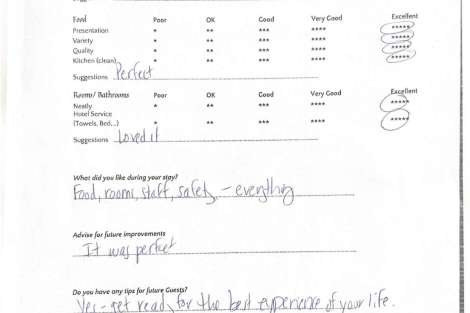 Food Poor OK Good Very Good Excellent
Presentation * ** *** **** *****
Variety * ** *** **** *****
Quality * ** *** **** *****
Kitchen (clean) * ** *** **** *****
Suggestions Perfect
Rooms/ Bathrooms Poor OK Good Very Good Excellent
Neatly * ** *** **** *****
Hotel Service
(Towels, Bed...) * ** *** **** *****
Suggestions Loved it
What did you like during your stay?
Food, rooms, staff, safety - everything
Advise for future improvements
It was perfect
Do you have any tips for future Guests?
Yes - get ready for the best experience of your life.